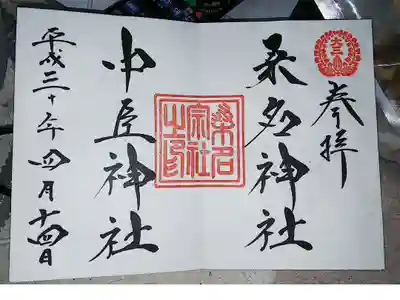 奉拝
桑名神社
桑名
宗社
之印
中臣神社
平成三十年四月十四日